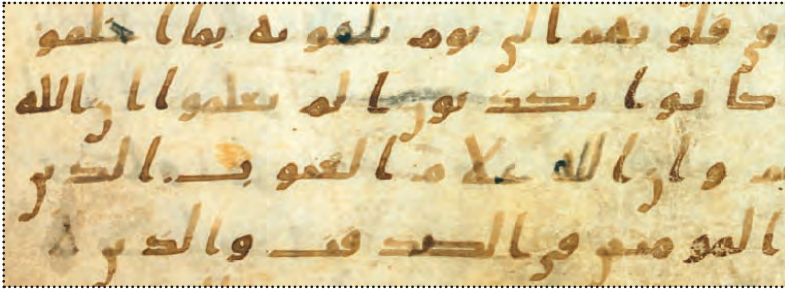 في قلوبهم الى يوم يلقونه بما اخلفوا
كانوا يكذبون الم يعلموا ان الله
وان الله علام الغيوب الذين
المومنين في الصدقت والذين لا